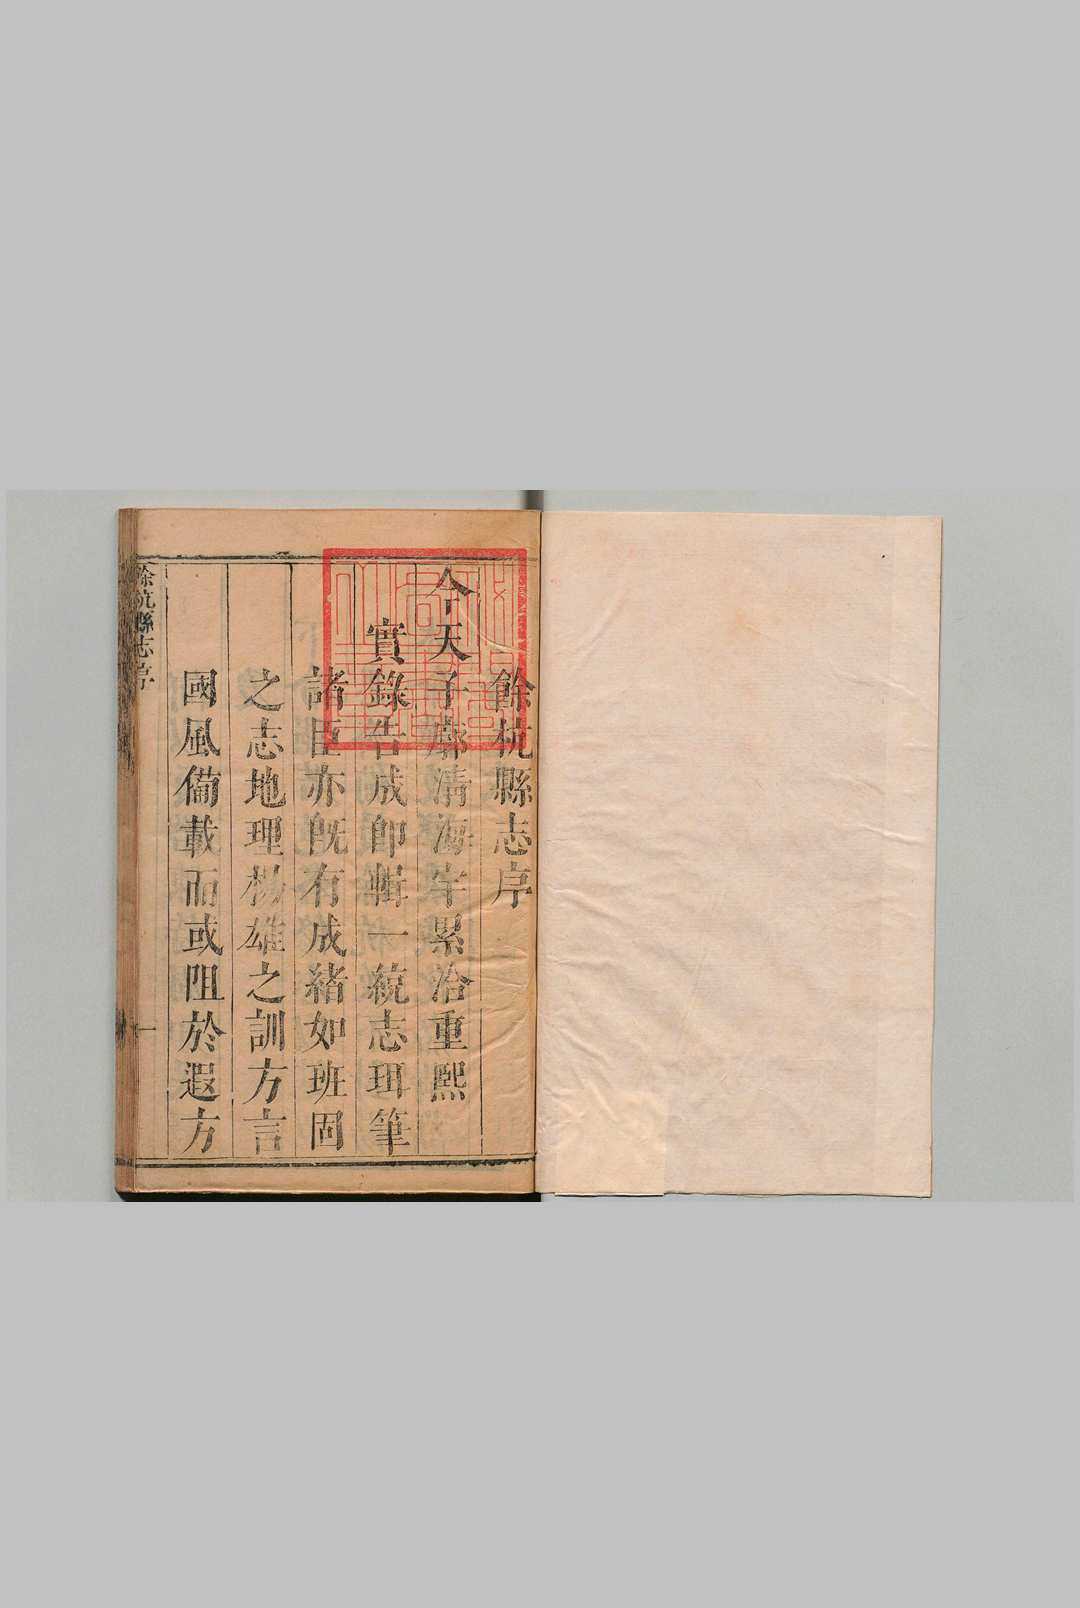 餘杭縣志序
今天子廓清海宇累洽重熙
實錄告成卽輯一統志珥筆
諸臣亦旣有成緒如班固
之志地理楊雄之訓方言
國風備載而或阻於遐方
餘杭縣志序
一